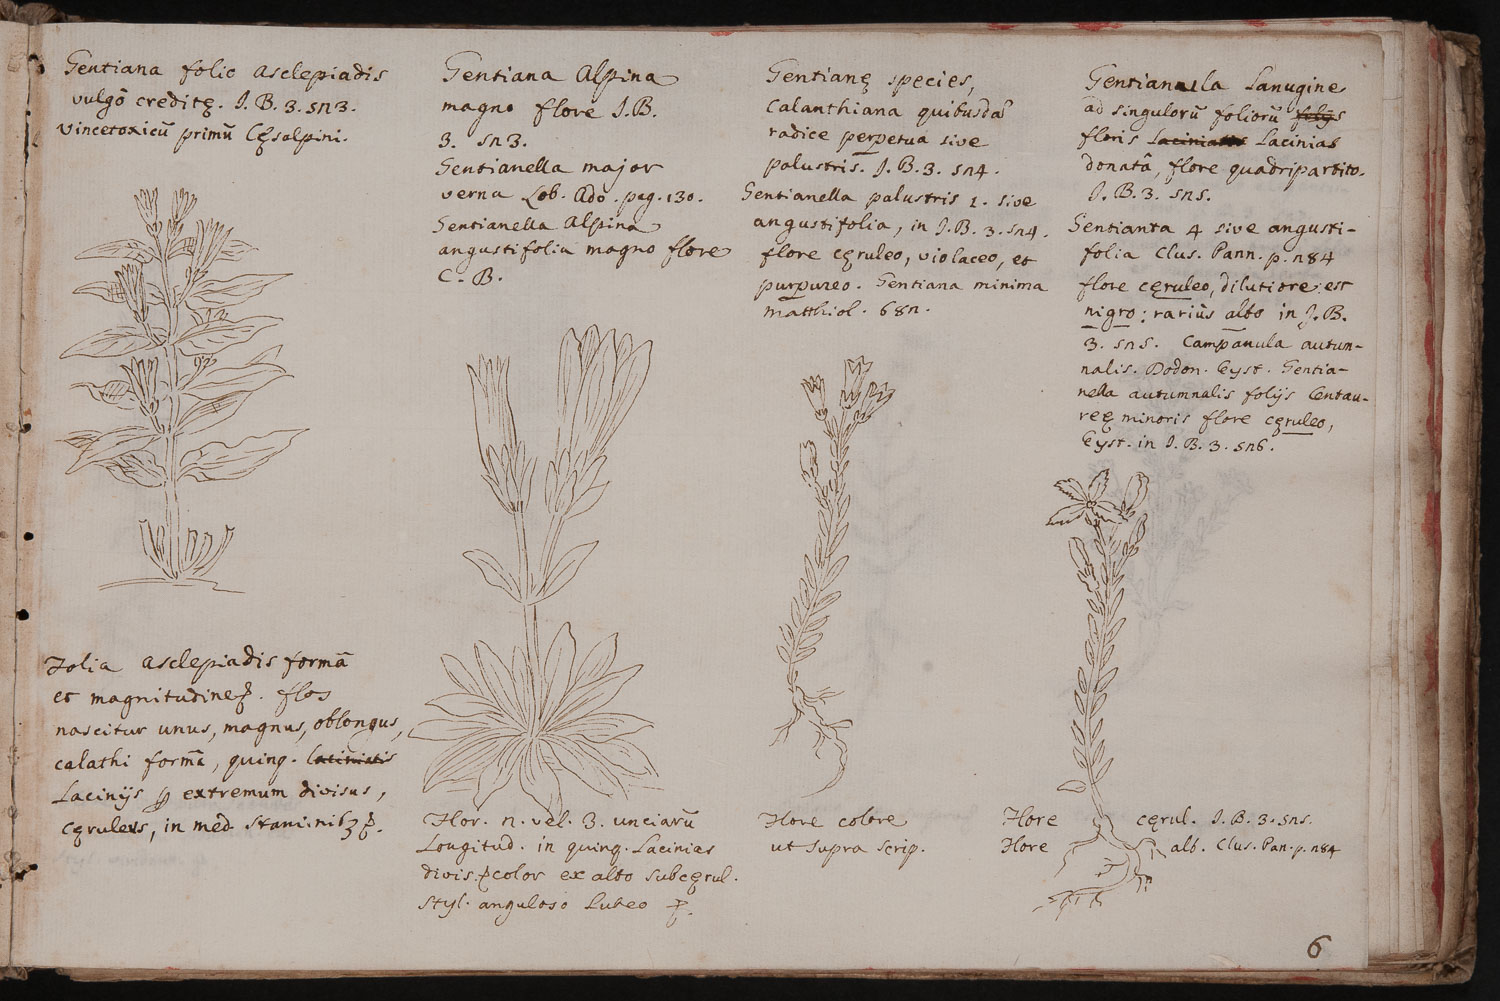 Gentiana folio asclepiadis
vulgò creditę. J. B. 3. 5n3.
vincetoxicũ primũ Cęsalpini.
Folia asclepiadis formã
et magnitudine. flos
nascitur unus, magnus, oblongus,
calathi formã, quinq. laciniatis
Lacinijs extremum divisus,
cęruleus, in med. stamini
Gentiana Alpina
magno flore J. B.
3. 5n3.
Gentianella major
verna Lob. Ado. pag. 130.
Gentianella Alpina
angustifolia magno flore
C. B.
Flor. n. vel. 3. unciarũ
Longitud. in quinq. Lacinias
divis. color ex albo subcęrul.
Styl. anguloso Luteo
Gentianę species,
Calanthiana quibusdã
radice perpetua sive
palustris. J. B. 3. 5n4.
Gentianella palustris 1. sive
angustifolia, in J. B. 3. 5n4.
flore cęruleo, violaceo, et
purpureo. Gentiana minima
Matthiol. 68n.
Flore colore
ut supra scrip.
Gentianella Lanugine
ad singulorũ foliorũ folijs
floris Lacinias
donatâ, flore quadripartito.
J. B. 3. 5n5.
Gentianta 4 sive angusti-
folia Clus. Pann. p. n84
flore cęruleo, dilutiore: est
nigro: rariùs albo in J. B.
3. 5n5. Campanula autum-
nalis. Dodon. Eyst. Gentia-
nella autumnalis folijs Centau-
reę minoris flore cęruleo,
Eyst. in J. B. 3. 5n6.
Flore cęrul. J. B. 3. 5n5.
Flore alb. Clus. Pan. p. n84
6